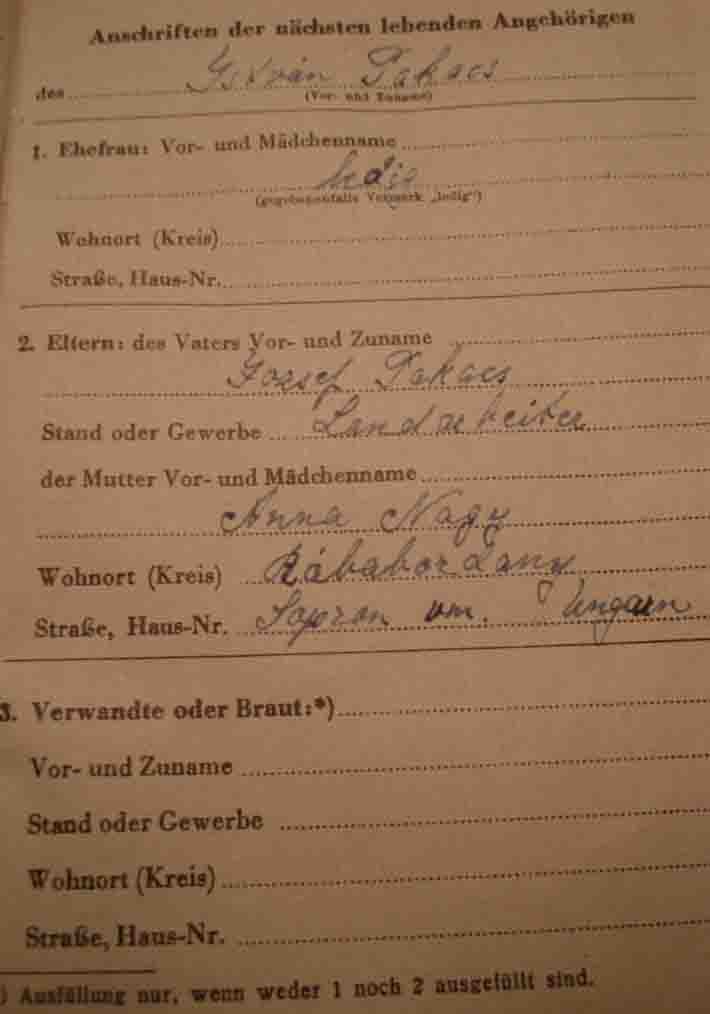 Anschriften der nächsten lebenden Angehörigen
des István Takacs
(Vor- und Zuname)
1. Ehefrau: Vor- und Mädchenname
(gegebenenfalls Vermerk „ledig“)
Wohnort (Kreis)
Straße, Haus-Nr.
2. Eltern: des Vaters Vor- und Zuname
Jozsef Takacs
Stand oder Gewerbe Landarbeiter
der Mutter Vor- und Mädchenname
Anna Nagy
Wohnort (Kreis)
Straße, Haus-Nr. Sopron vm. Ungarn
3. Verwandte oder Braut:*)
Vor- und Zuname
Stand oder Gewerbe
Wohnort (Kreis)
Straße, Haus-Nr.
) Ausfüllung nur, wenn weder 1 noch 2 ausgefüllt sind.